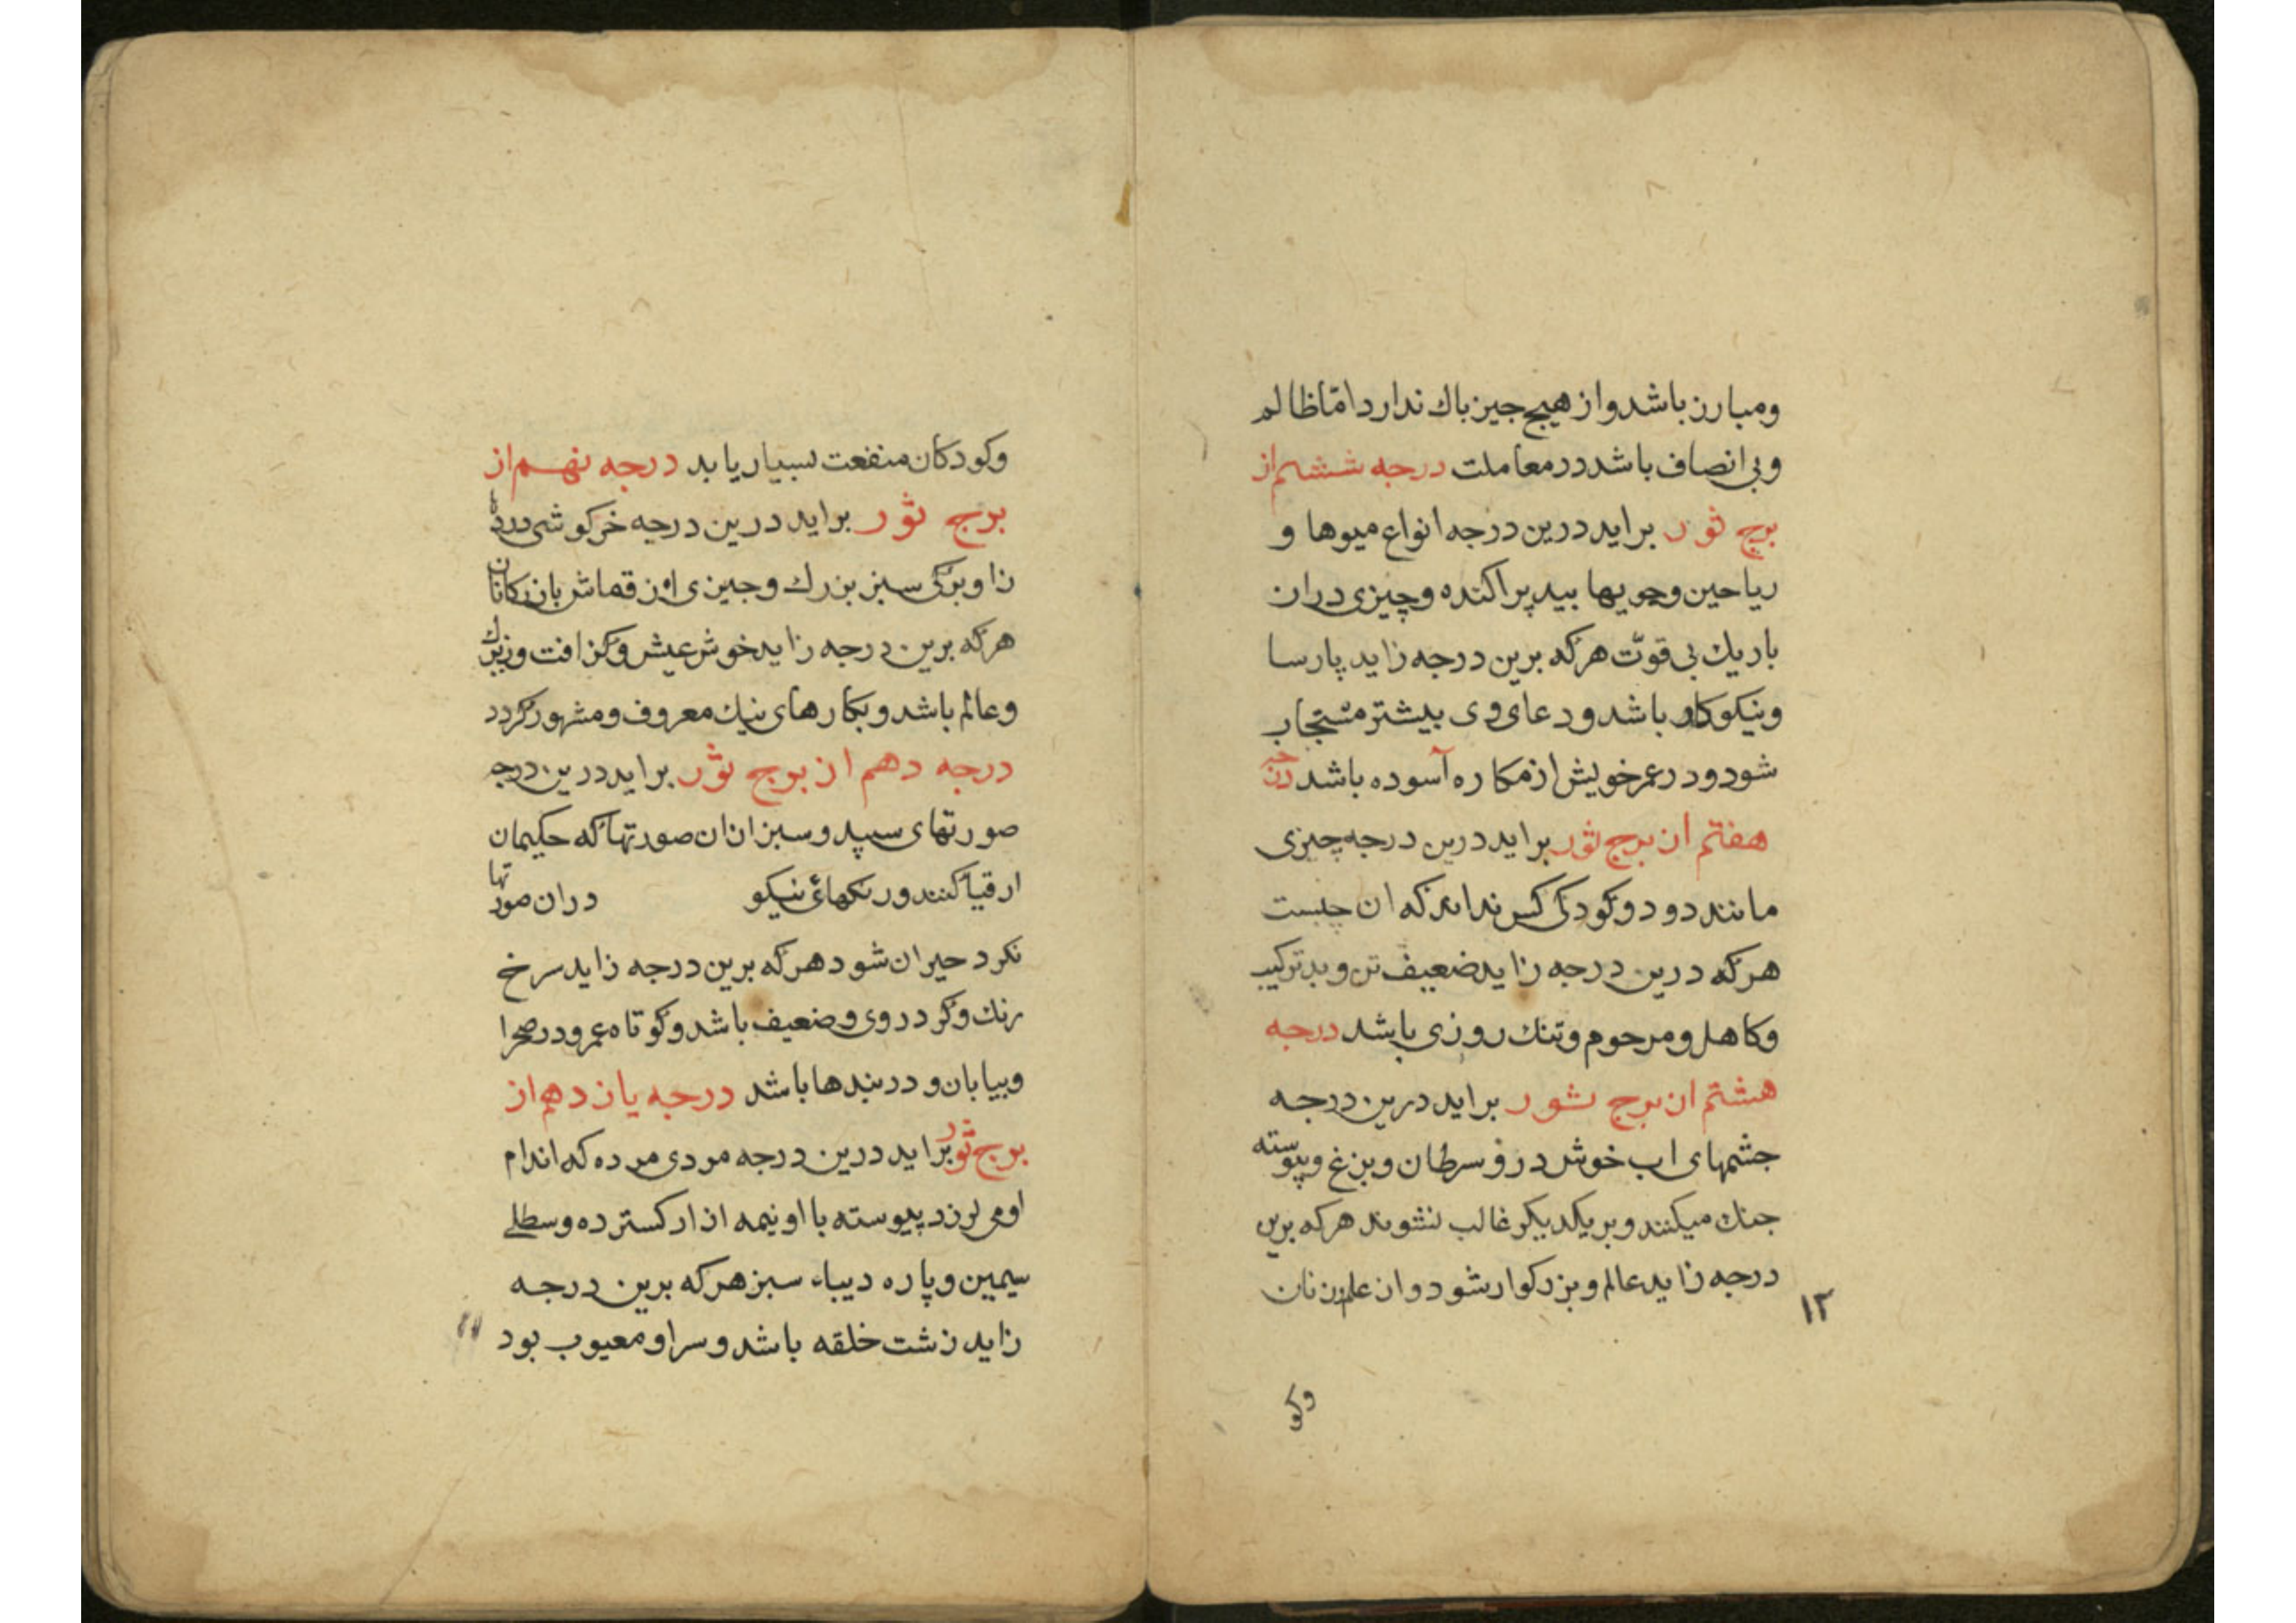 ومبارز باشد و از هیچ جیز باك ندارد امّا ظالم
وبی انصاف باشد در معاملت درجه ششم از
برج ثور براید درین درجه انواع میوها و
ریاحین وجویها بید پراکنده وچیزی دران
باریك بی قوّت هرکه برین درجه زاید پارسا
ونیکوکار باشد ودعای وی بیشتر مستجاب
شود ودر عمر خویش از مکاره آسوده باشد درجه
هفتم از برج ثور براید درین درجه چیزی
مانند دود وکودکی کس نداند که ان چیست
هرکه درین درجه زاید ضعیف تن وبد ترکیب
وکاهل ومرحوم وتنك روزی باشد درجه
هشتم از برج ثور براید درین درجه
جشمهای اب خوش درو سرطان وبزغ وپیوسته
جنك میکنند وبر یکدیکر غالب نشوند هرکه برین
درجه زاید عالم وبزرکوار شود واز علم زنان
۱۲
وکو
وکودکان منفعت بسیار یابد درجه نهم از
برج ثور براید درین درجه خرکوشی
زا وبرکی سبز بزرك وجیزی از قماش بازرکانان
هرکه برین درجه زاید خوش عیش وکزافت وزیرك
وعالم باشد وبکارهای نیك معروف ومشهور کردد
درجه دهم از برج ثور براید درین درجه
صورتهای سپید وسبز ازان صورتها که حکیمان
ارقیا کنند ورنکهائ نیکو دران صورتها
نکرد حیران شود هرکه برین درجه زاید سرخ
رنك وکرد روی وضعیف باشد وکوتاه عمر ودر صحرا
وبیابان ودر بندها باشد درجه یازدهم از
برج ثور براید درین درجه مردی مرده که اندام
او می لرزد پیوسته با او نیمه ازار کسترده وسطلی
سیمین وپاره دیباء سبز هرکه برین درجه
زاید زشت خلقه باشد وسر او معیوب بود